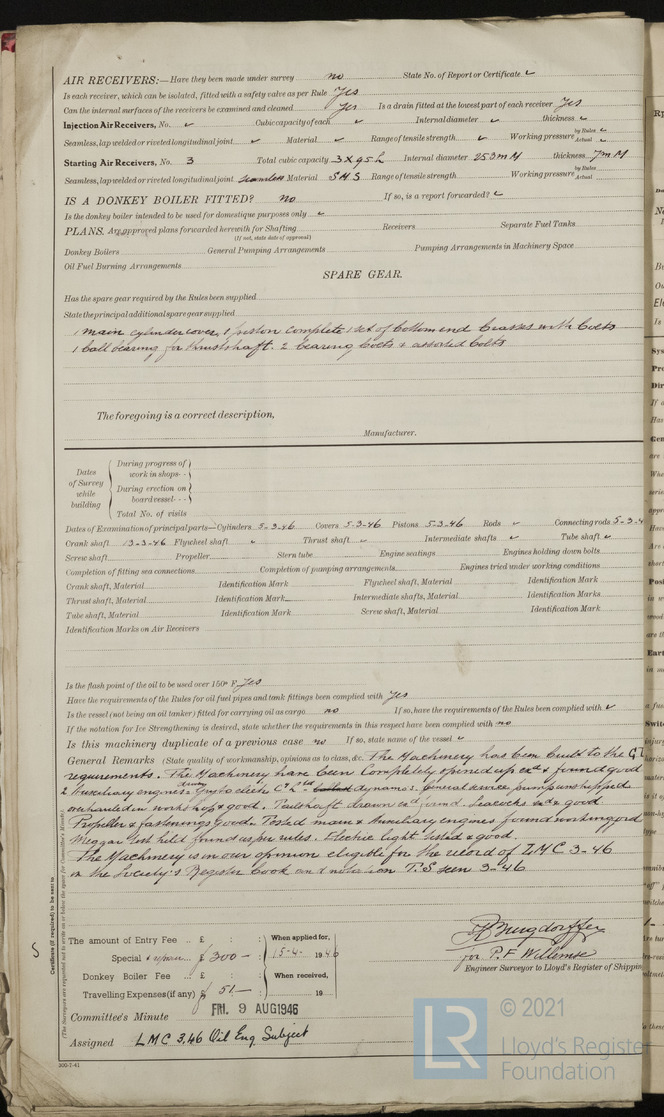 AIR RECEIVERS:—Have they been made under survey no State No. of Report or Certificate ✓
Is each receiver, which can be isolated, fitted with a safety valve as per Rule Yes
Can the internal surfaces of the receivers be examined and cleaned Yes Is a drain fitted at the lowest part of each receiver Yes
Injection Air Receivers, No. ✓ Cubic capacity of each ✓ Internal diameter ✓ thickness ✓
Seamless, lap welded or riveted longitudinal joint ✓ Material ✓ Range of tensile strength ✓ Working pressure by Rules ✓ Actual ✓
Starting Air Receivers, No. 3 Total cubic capacity 3 x 95 L Internal diameter 253 mM thickness 7 mM
Seamless, lap welded or riveted longitudinal joint Seamless Material S.M.S Range of tensile strength Working pressure by Rules Actual
IS A DONKEY BOILER FITTED? no If so, is a report forwarded? ✓
Is the donkey boiler intended to be used for domestic purposes only ✓
PLANS. Are approved plans forwarded herewith for Shafting Receivers Separate Fuel Tanks
(If not, state date of approval)
Donkey Boilers General Pumping Arrangements Pumping Arrangements in Machinery Space
Oil Fuel Burning Arrangements
SPARE GEAR.
Has the spare gear required by the Rules been supplied
State the principal additional spare gear supplied
1 main cylinder cover, 1 piston complete 1 set of bottom end brasses with bolts
1 ball bearing for thrustshaft. 2 bearing bolts & assorted bolts
The foregoing is a correct description,
Manufacturer.
Dates of Survey while building
During progress of work in shops
During erection on board vessel
Total No. of visits
Dates of Examination of principal parts—Cylinders 5-3-46 Covers 5-3-46 Pistons 5-3-46 Rods ✓ Connecting rods 5-3-4
Crank shaft 13-3-46 Flywheel shaft ✓ Thrust shaft ✓ Intermediate shafts ✓ Tube shaft ✓
Screw shaft Propeller Stern tube Engine seatings Engines holding down bolts
Completion of fitting sea connections Completion of pumping arrangements Engines tried under working conditions
Crank shaft, Material Identification Mark Flywheel shaft, Material Identification Mark
Thrust shaft, Material Identification Mark Intermediate shafts, Material Identification Marks
Tube shaft, Material Identification Mark Screw shaft, Material Identification Mark
Identification Marks on Air Receivers
Is the flash point of the oil to be used over 150° F. Yes
Have the requirements of the Rules for oil fuel pipes and tank fittings been complied with Yes
Is the vessel (not being an oil tanker) fitted for carrying oil as cargo no If so, have the requirements of the Rules been complied with ✓
If the notation for Ice Strengthening is desired, state whether the requirements in this respect have been complied with no
Is this machinery duplicate of a previous case no If so, state name of the vessel ✓
General Remarks (State quality of workmanship, opinions as to class, &c. The Machinery has been built to the G.L
requirements. The Machinery have been Completely opened up exd & found good
2 Auxiliary engines driving dynamos. General service pump unshipped
overhauled in workshop & good. Tailshaft drawn exd found. Seacocks exd & good
Propeller & fastenings good. Tested main & Auxiliary engines found working good
Meggar test held found as per rules. Electric light tested & good.
The Machinery is in our opinion eligible for the record of LMC 3-46
in the Society's Register book and notation T.S seen 3-46
The amount of Entry Fee .. £ : : When applied for,
Special £ 300 - 15-4- 1946
Donkey Boiler Fee ... £ : : When received,
Travelling Expenses (if any) £ 51 - 19
for P.F Willemse
Engineer Surveyor to Lloyd's Register of Shippin
Committee's Minute FRI. 9 AUG 1946
Assigned LMC 3.46 Oil Eng. Subject
300-7-41
Certificate (if required) to be sent to
(The Surveyors are requested not to write on or below the space for Committee's Minute)
LR © 2021
Lloyd's Register
Foundation